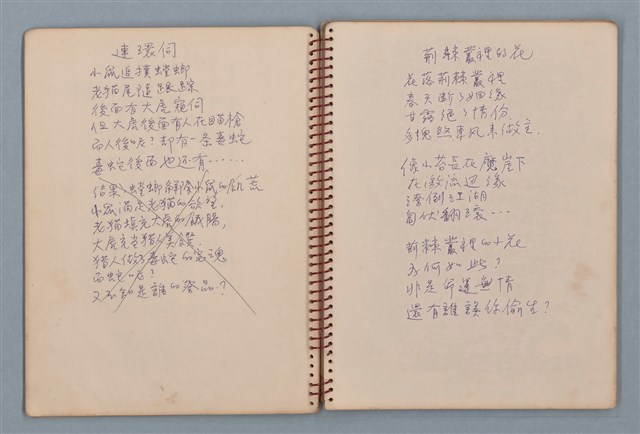 連環伺
小鼠追撲螳螂
老貓尾隨跟踪
後面有大虎窺伺
但大虎後面有人在瞄槍
而人後呢？却有一条毒蛇
毒蛇後面也还有……
結果 螳螂解除小鼠的飢荒
小鼠滿足老貓的欲望
老貓填充大虎的餓腸，
大虎充当猎人美饌
猎人做了毒蛇的冤魂
而蛇呢？
又不知是誰的祭品？
荊棘叢裡的花
花落荊棘叢裡
春天斷了姻緣
甘露絕了情份
灵魂煞車风來做主.
像小草長在魔崖下
在激流边緣
浮倒江湖
匐伏翻滾…
荊棘叢裡的小花
为何如此？
非是命運無情
還有誰讓你偷生？